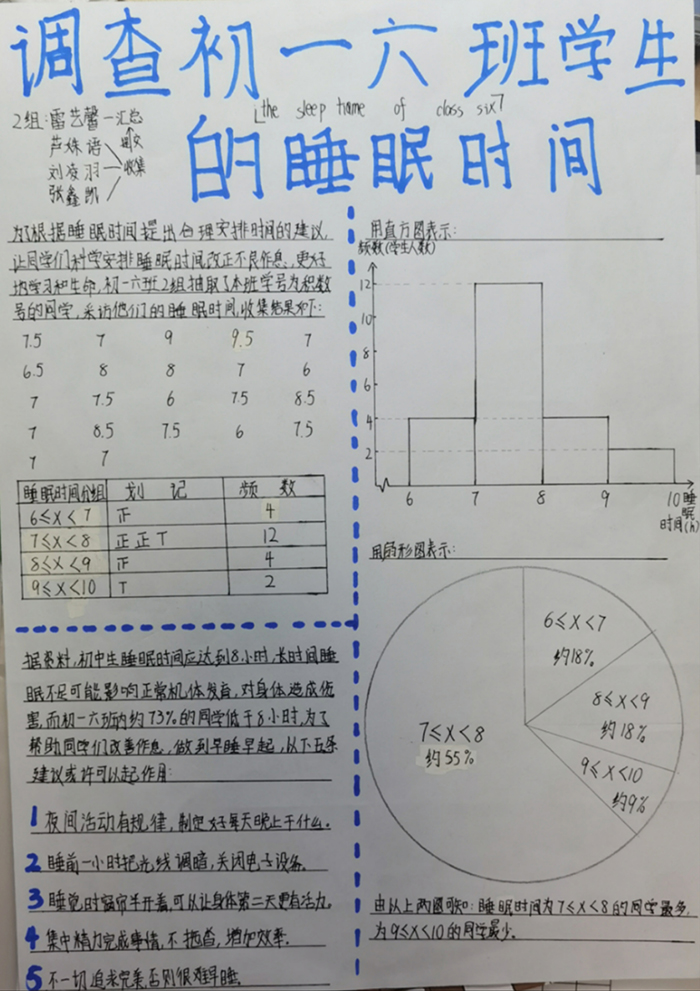 调查初一六班学生
「the sleep time of class six」
的睡眠时间
2组:雷艺馨一汇总
芦姝语
刘凌羽 收集
张鑫凯
为了根据睡眠时间提出合理安排时间的建议,
让同学们科学安排睡眠时间,改正不良作息,更好
地学习和生命,初一六班2组抽取了本班学号为积数
号的同学,采访他们的睡眠时间,收集结果如下:
7.5 7 9 9.5 7
6.5 8 8 7 6
7 7.5 6 7.5 8.5
7 8.5 7.5 6 7.5
7 7
睡眠时间分组 划记 频数
6≤x<7 正 4
7≤x<8 正正T 12
8≤x<9 正 4
9≤x<10 T 2
据资料,初中生睡眠时间应达到8小时,长时间睡
眠不足可能影响正常机体发育,对身体造成伤
害,而初一六班内约73%的同学低于8小时,为了
帮助同学们改善作息,做到早睡早起,以下五条
建议或许可以起作用:
1 夜间活动有规律,制定好每天晚上干什么.
2 睡前一小时把光线调暗,关闭电子设备.
3 睡觉时窗帘半开着,可以让身体第二天更有活力.
4 集中精力完成事情,不拖沓,增加效率.
5 不一切追求完美,否则很难早睡.
用直方图表示:
频数(学生人数)
12
10
8
6
4
2
6 7 8 9 10 睡眠
时间(h)
用扇形图表示:
6≤x<7
约18%
8≤x<9
约18%
7≤x<8
约55%
9≤x<10
约9%
由以上两图可知:睡眠时间为7≤x<8的同学最多,
为9≤x<10的同学最少.